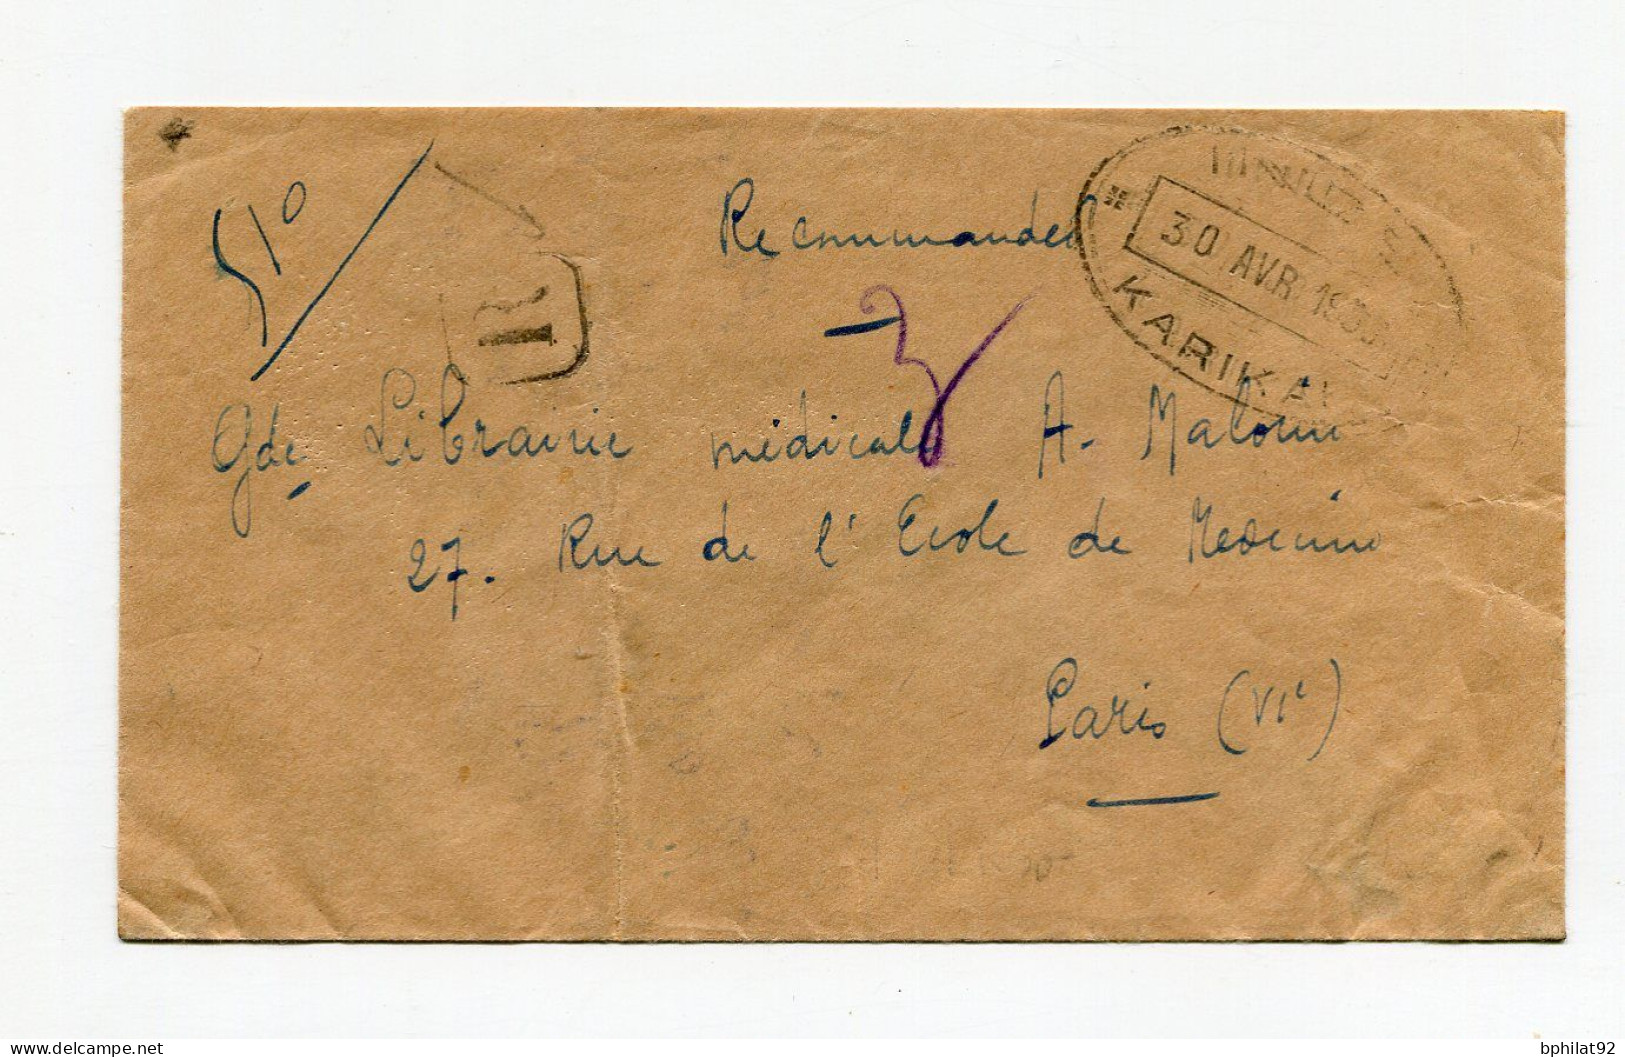 510
Recommandée
R
30 AVR. 19
KARIKA
Gde Librairie médicale A. Maloine
27. Rue de l'Ecole de Medecine
Paris (VIe)
bphilat92